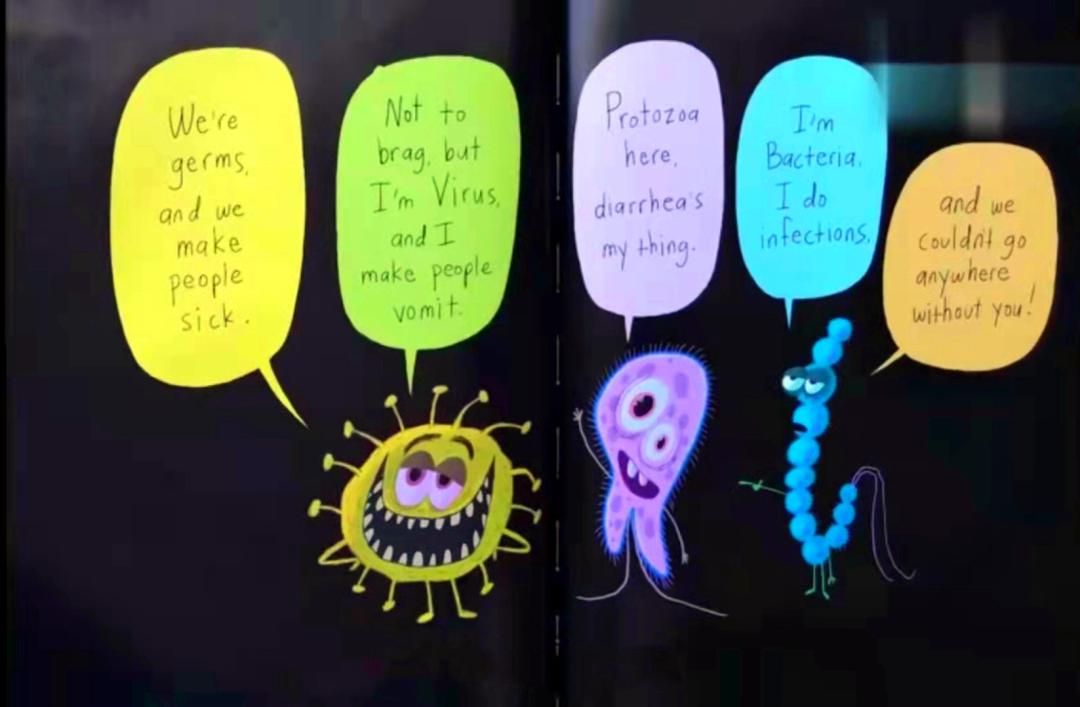 We're
germs,
and we
make
people
sick.
Not to
brag, but
I'm Virus,
and I
make people
vomit.
Protozoa
here,
diarrhea's
my thing.
I'm
Bacteria.
I do
infections,
and we
couldn't go
anywhere
without you!